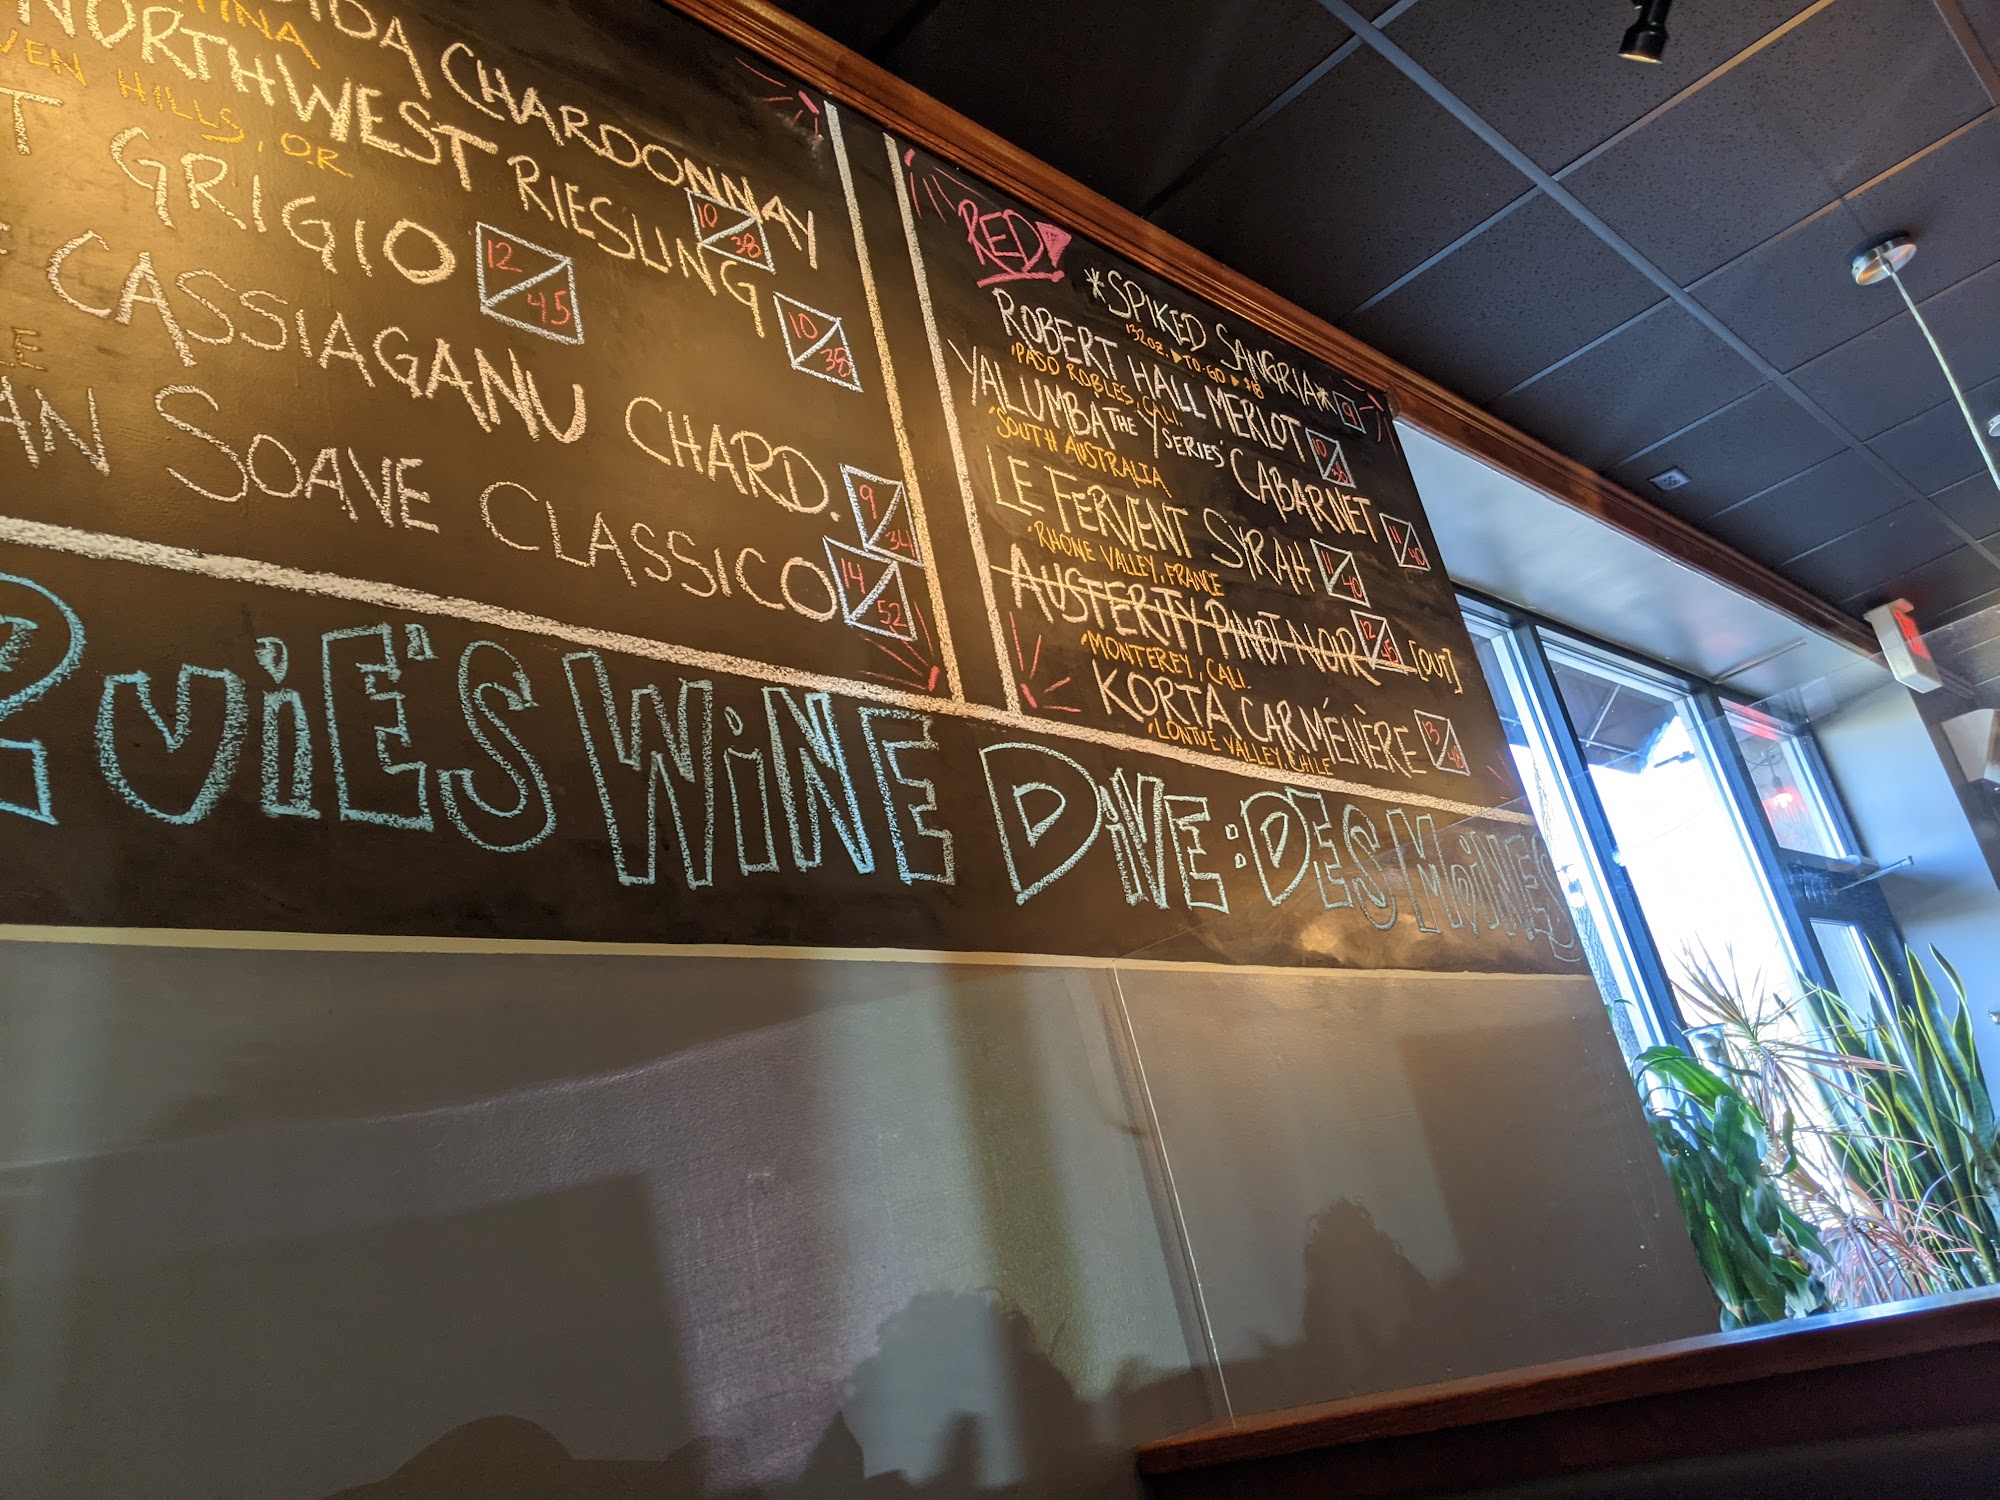 IDA CHARDONNAY 10 38
TINA
NORTHWEST RIESLING 10 38
VEN HILLS, OR
T GRIGIO 12 45
CASSIAGANU CHARD. 9 34
AN SOAVE CLASSICO 14 52
RED
*SPIKED SANGRIA* 9
32OZ. ▶TO-GO ▶ $18
ROBERT HALL MERLOT 10 38
'PASO ROBLES, CALI.
YALUMBA THE 'Y SERIES' CABARNET 11 40
'SOUTH AUSTRALIA
LE FERVENT SYRAH 11 40
'RHONE VALLEY, FRANCE
AUSTERITY PINOT NOIR 12 45 [OUT]
'MONTEREY, CALI.
KORTA CARMÉNÈRE 13 48
'LONTUE VALLEY, CHILE
ViE'S WiNE DiVE : DES MOiNES